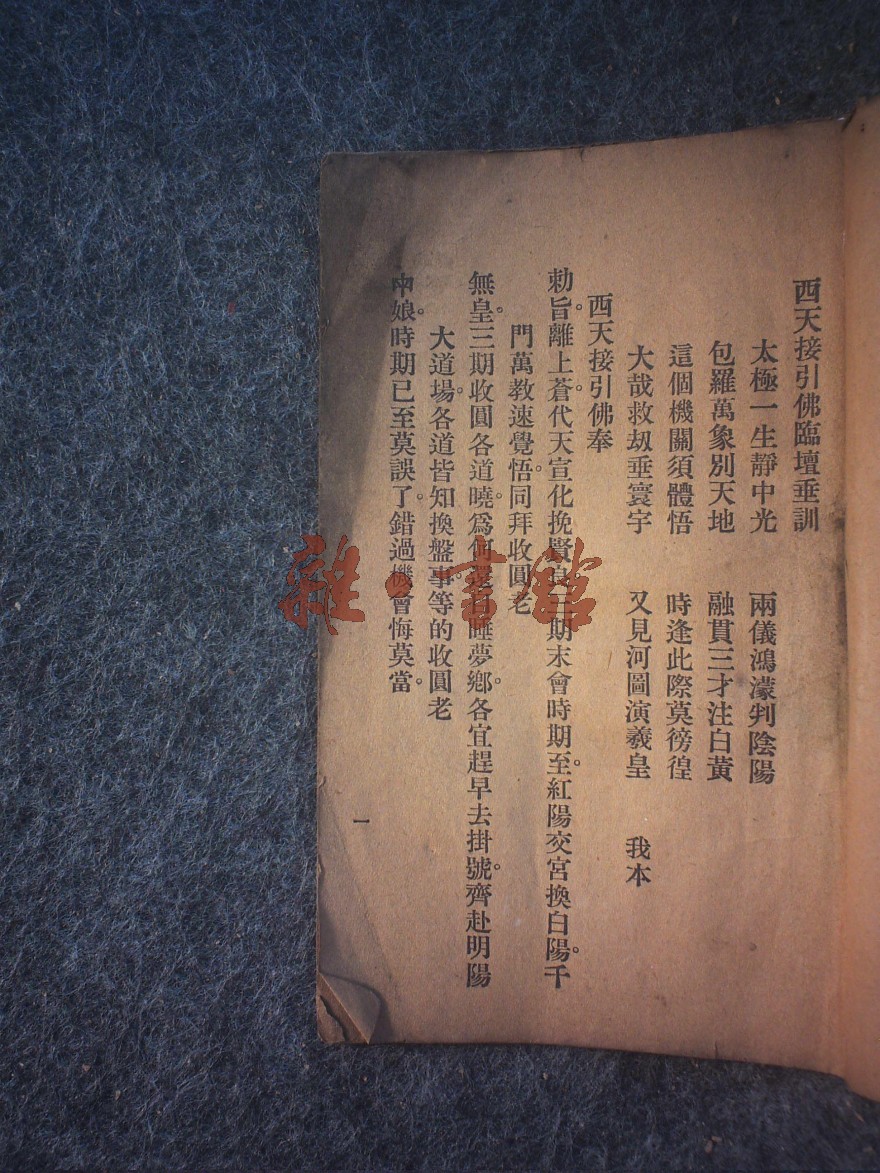 西天接引佛臨壇垂訓
太極一生靜中光　兩儀鴻濛判陰陽
包羅萬象別天地　融貫三才注白黃
這個機關須體悟　時逢此際莫徬徨
大哉救刼垂寰宇　又見河圖演羲皇　我本
西天接引佛奉
勅旨。離上蒼。代天宣化挽賢良期末會時期至。紅陽交宮換白陽。千
門萬教速覺悟。同拜收圓老
無皇。三期收圓各道曉。爲何還自睡夢鄉。各宜趕早去掛號。齊赴明陽
大道場。各道皆知換盤事。等的收圓老
娘。時期已至莫誤了。錯過機會悔莫當。
一
雜·書館